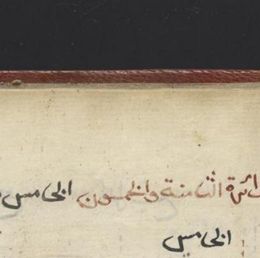 ائرة الثامنة والخمسون الخامس
الخامس